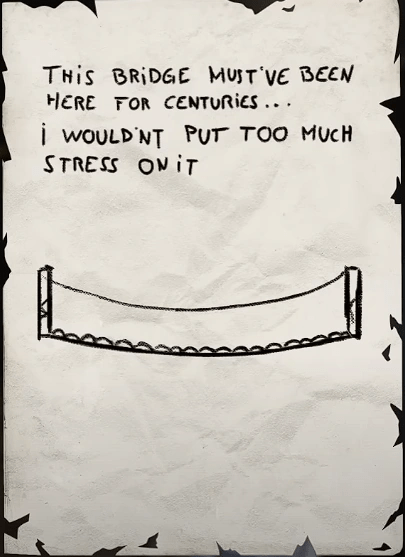 THiS BRiDGE MUST'VE BEEN
HERE FOR CENTURiES...
i WOULD'NT PUT TOO MUCH
STRESS ON iT